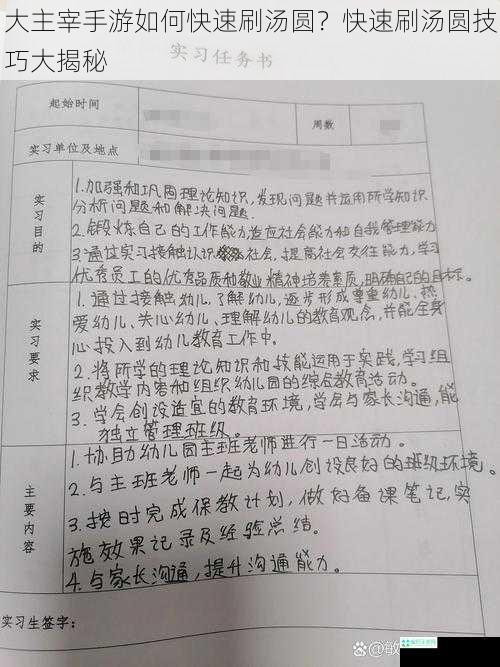 大主宰手游如何快速刷汤圆？快速刷汤圆技
巧大揭秘
实习任务书
起始时间
周数
实习单位及地点
实习目的
1.加强和巩固理论知识，发现问题并运用所学知识
分析问题和解决问题.
2.锻炼自己的工作能力,适应社会能力和自我管理能力
3.通过实习接触认识社会，提高社会交往能力，学习
优秀员工的优秀品质和敬业精神培养素质，明确自己的目标。
实习要求
1.通过接触幼儿,了解幼儿,逐步形成尊重幼儿、热
爱幼儿、关心幼儿、理解幼儿的教育观念，并能全身
心投入到幼儿教育工作中。
2.将所学的理论知识和技能运用于实践,学习组
织教学内容和组织幼儿园的综合教育活动。
3.学会创设适宜的教育环境,学会与家长沟通,能
独立管理班级。
主要内容
1.协助幼儿园主班老师进行一日活动。
2.与主班老师一起为幼儿创设良好的班级环境。
3.按时完成保教计划，做好备课笔记,实
施效果记录及经验总结。
4.与家长沟通，提升沟通能力。
实习生签字：
百度@敏